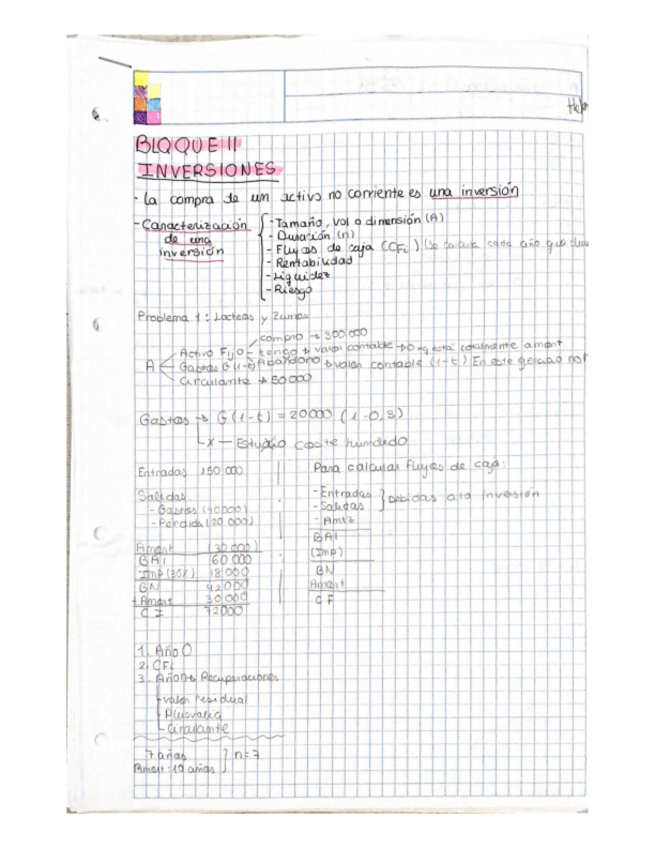 BLOQUE II
INVERSIONES
- La compra de un activo no corriente es una inversión
- Caracterización de una inversión
- Tamaño, vol o dimensión (A)
- Duración (n)
- Flujos de caja (CFi) (Se calcula cada año que dura
- Rentabilidad
- Liquidez
- Riesgo
Problema 1: Lacteos y Zumos
compro → 300 000
A
Activo Fijo - tengo → valor contable → 0 xq está totalmente amort
Abandono → valor contable (1-t) En este caso no
Gastos G (1-t)
Circulante → 50 000
Gastos → G (1-t) = 20000 (1-0,3)
X — Estudio coste hundido
Entradas 150 000
Salidas
- Gastos (40000)
- Perdida (20 000)
Amort (30 000)
BAI 60 000
Imp (30%) 18 000
BN 42000
+ Amort 30 000
CF 72000
Para calcular Flujos de caja:
- Entradas
- Salidas
Debidas a la inversión
- Amtz
BAI
(Imp)
BN
Amort
CF
1. Año 0
2. CFi
3. Año n → Recuperaciones
- Valor residual
- Plusvalía
- Circulante
7 años
n = 7
Amort: 10 años